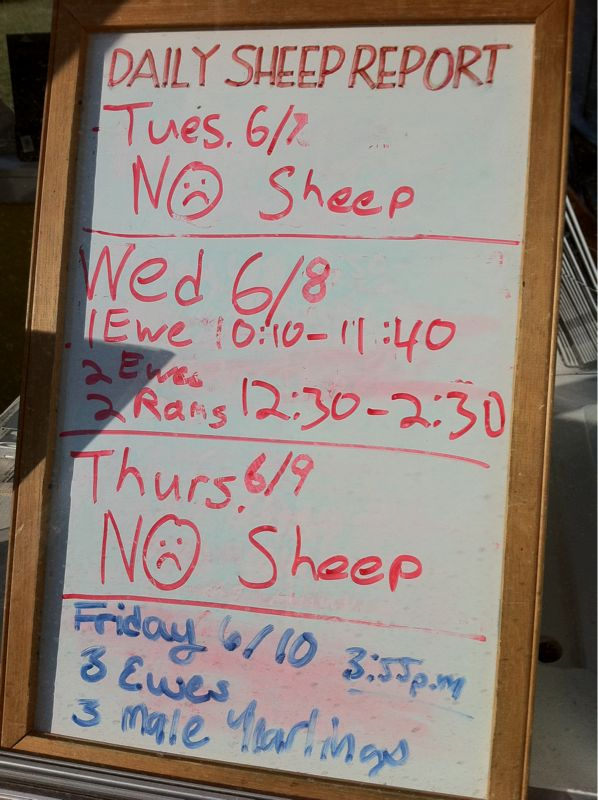 DAILY SHEEP REPORT
Tues. 6/7
NO Sheep
Wed 6/8
1 Ewe 10:10-11:40
2 Ewes
2 Rams 12:30-2:30
Thurs. 6/9
NO Sheep
Friday 6/10 3:55p.m
3 Ewes
3 male Yearlings